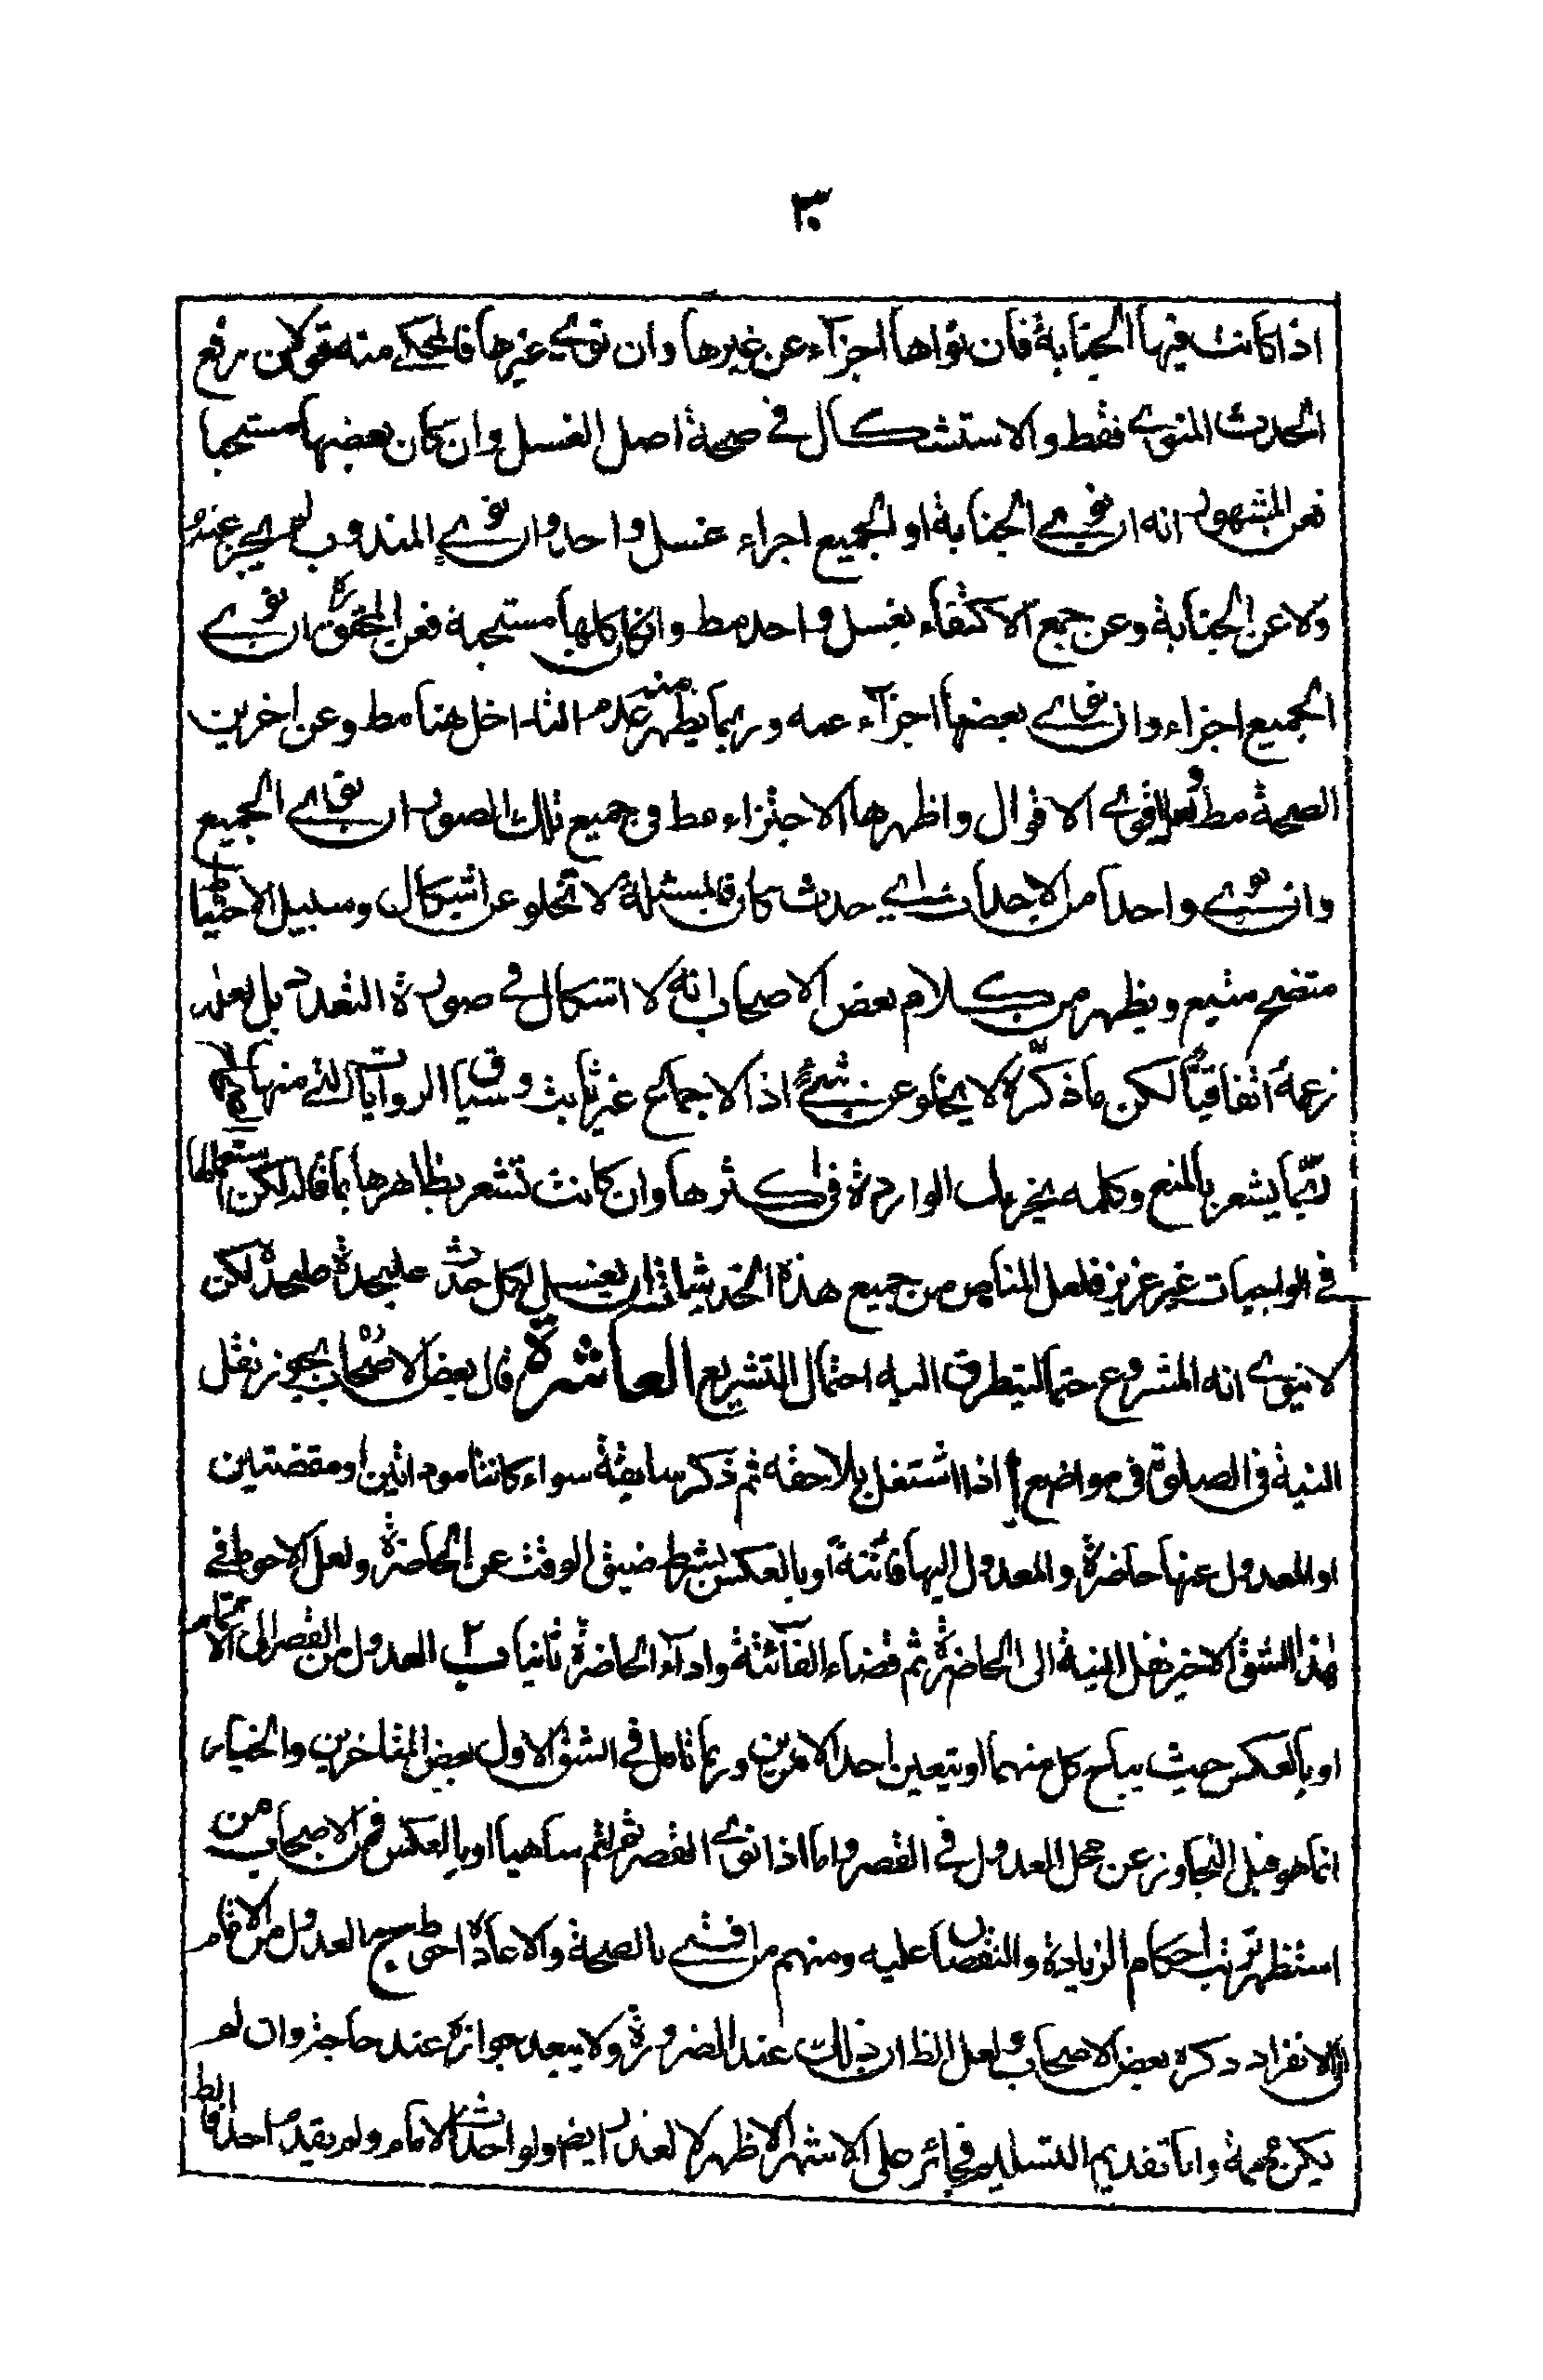 ٣٠
اذا كانت فيها الجنابة فان نواها اجزاء عن غيرها وان نوى غيرها فالمحكي منه قولان رفع
الحدث المنوي فقط والاستشكال في صحة اصل الغسل وان كان بعضها مستحبا
فعن المشهور انه ان نوى الجنابة او الجميع اجزاء غسل واحد وان نوى المندوب لم يجز عنه
ولا عن الجنابة وعن جمع الاكتفاء بغسل واحد مط وان كان كلها مستحبة فعن المحقق ره ان نوى
الجميع اجزاء وان نوى بعضها اجزاء عنه وربما يظهر منه عدم التداخل هنا مط وعن اخرين
الصحة مط ولعل اقوى الاقوال واظهرها الاجتزاء مط في جميع تلك الصور ان نوى الجميع
وان نوى واحدا من الاحداث اي حدث كان فالمسئلة لا تخلو عن اشكال وسبيل الاحتياط
متضح متبع ويظهر من كلام بعض الاصحاب انه لا اشكال في صورة التعدد بل لعله
زعمه اتفاقيا لكن ما ذكره لا يخلو عن شيء اذ الاجماع غير ثابت وسياق الروايات التي منها
ربما يشعر بالمنع وكلمه يجزيك الواردة في اكثرها وان كانت تشعر بظاهرها بما قاله لكن استعمالها
في الواجبات غير عزيز فلعل المناص من جميع هذه الخدشات ان يغسل لكل حدث عليحدة عليحدة لكن
لا ينوي انه المشروع حتما ليتطرق اليه احتمال التشريع العاشرة قال بعض الاصحاب يجوز نقل
النية في الصلوة في مواضع ا اذا اشتغل بلاحقه ثم ذكر سابقة سواء كانتا موداتين او مقضتين
او المعدول عنها حاضرة والمعدول اليها فائتة او بالعكس بشرط ضيق الوقت عن الحاضرة ولعل الاحوط في
هذا الشق الاخير نقل النية الى الحاضرة ثم قضاء الفائتة واداء الحاضرة ثانيا ب العدول من القصر الى الاتمام
او بالعكس حيث يباح كل منهما او يتعين احد الامرين وربما تامل في الشق الاول بعض المتاخرين والخيار
انما هو قبل التجاوز عن محل العدول في القصر واما اذا نوى القصر ثم اتم ساهيا او بالعكس فمن الاصحاب من
استظهر ترتب احكام الزيادة والنقصان عليه ومنهم من افتى بالصحة والاعادة احوط ج العدول من الائتمام
الى الانفراد ذكره بعض الاصحاب ولعل الظ ان ذلك عند الضرورة ولا يبعد جوازه عند حاجة وان لم
يكن مهمة واما تقديم التسليم فجائز على الاشهر الاظهر لا لعذر ايضا ولو احدث الامام ولم يقدم احدا فالظ